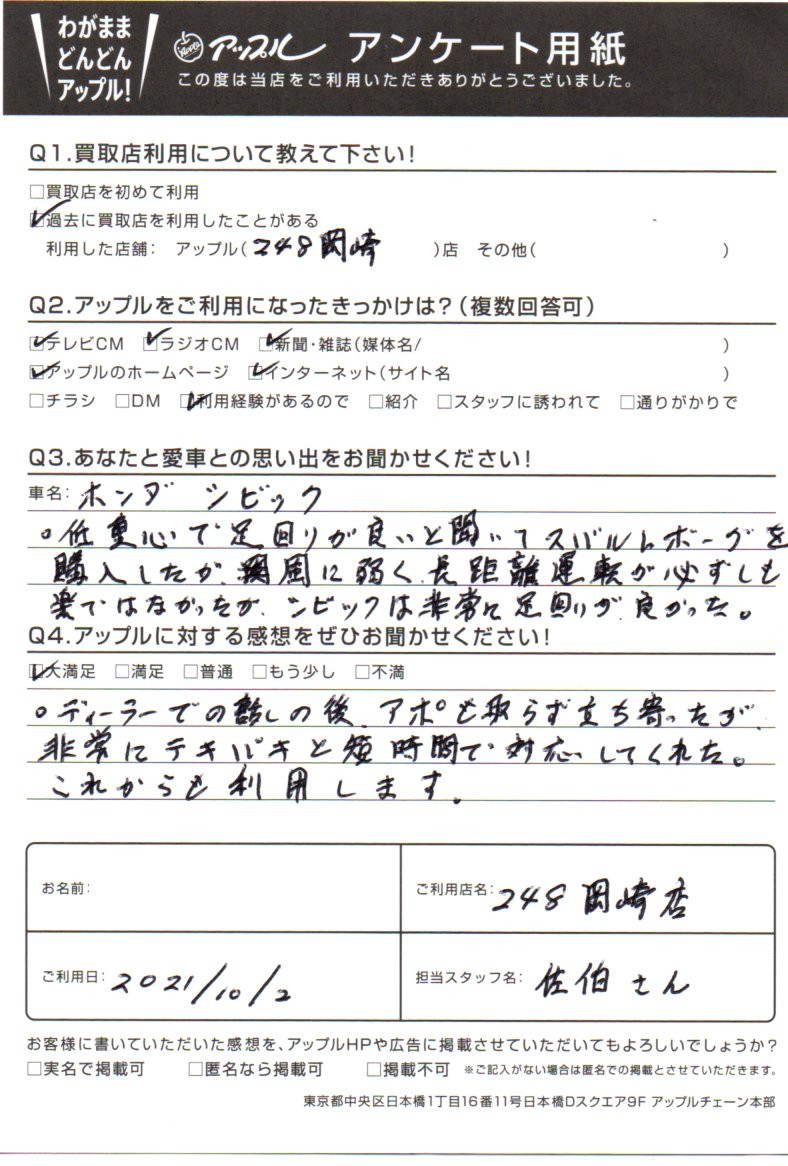 わがまま
どんどん
アップル!
アップル アンケート用紙
この度は当店をご利用いただきありがとうございました。
Q1.買取店利用について教えて下さい!
□買取店を初めて利用
☑過去に買取店を利用したことがある
利用した店舗: アップル(248岡崎)店 その他( )
Q2.アップルをご利用になったきっかけは?(複数回答可)
☑テレビCM ☑ラジオCM ☑新聞・雑誌(媒体名/ )
☑アップルのホームページ ☑インターネット(サイト名 )
□チラシ □DM ☑利用経験があるので □紹介 □スタッフに誘われて □通りがかりで
Q3.あなたと愛車との思い出をお聞かせください!
車名: ホンダ シビック
。低重心で足回りが良いと聞いてスバルレボーグを
購入したが、横風に弱く、長距離運転が必ずしも
楽ではなかったが、シビックは非常に足回りが良かった。
Q4.アップルに対する感想をぜひお聞かせください!
☑大満足 □満足 □普通 □もう少し □不満
。ディーラーでの話しの後、アポも取らず立ち寄ったが、
非常にテキパキと短時間で対応してくれた。
これからも利用します。
お名前:
ご利用店名: 248岡崎店
ご利用日: 2021/10/2
担当スタッフ名: 佐伯さん
お客様に書いていただいた感想を、アップルHPや広告に掲載させていただいてもよろしいでしょうか?
□実名で掲載可 □匿名なら掲載可 □掲載不可 ※ご記入がない場合は匿名での掲載とさせていただきます。
東京都中央区日本橋1丁目16番11号日本橋Dスクエア9F アップルチェーン本部